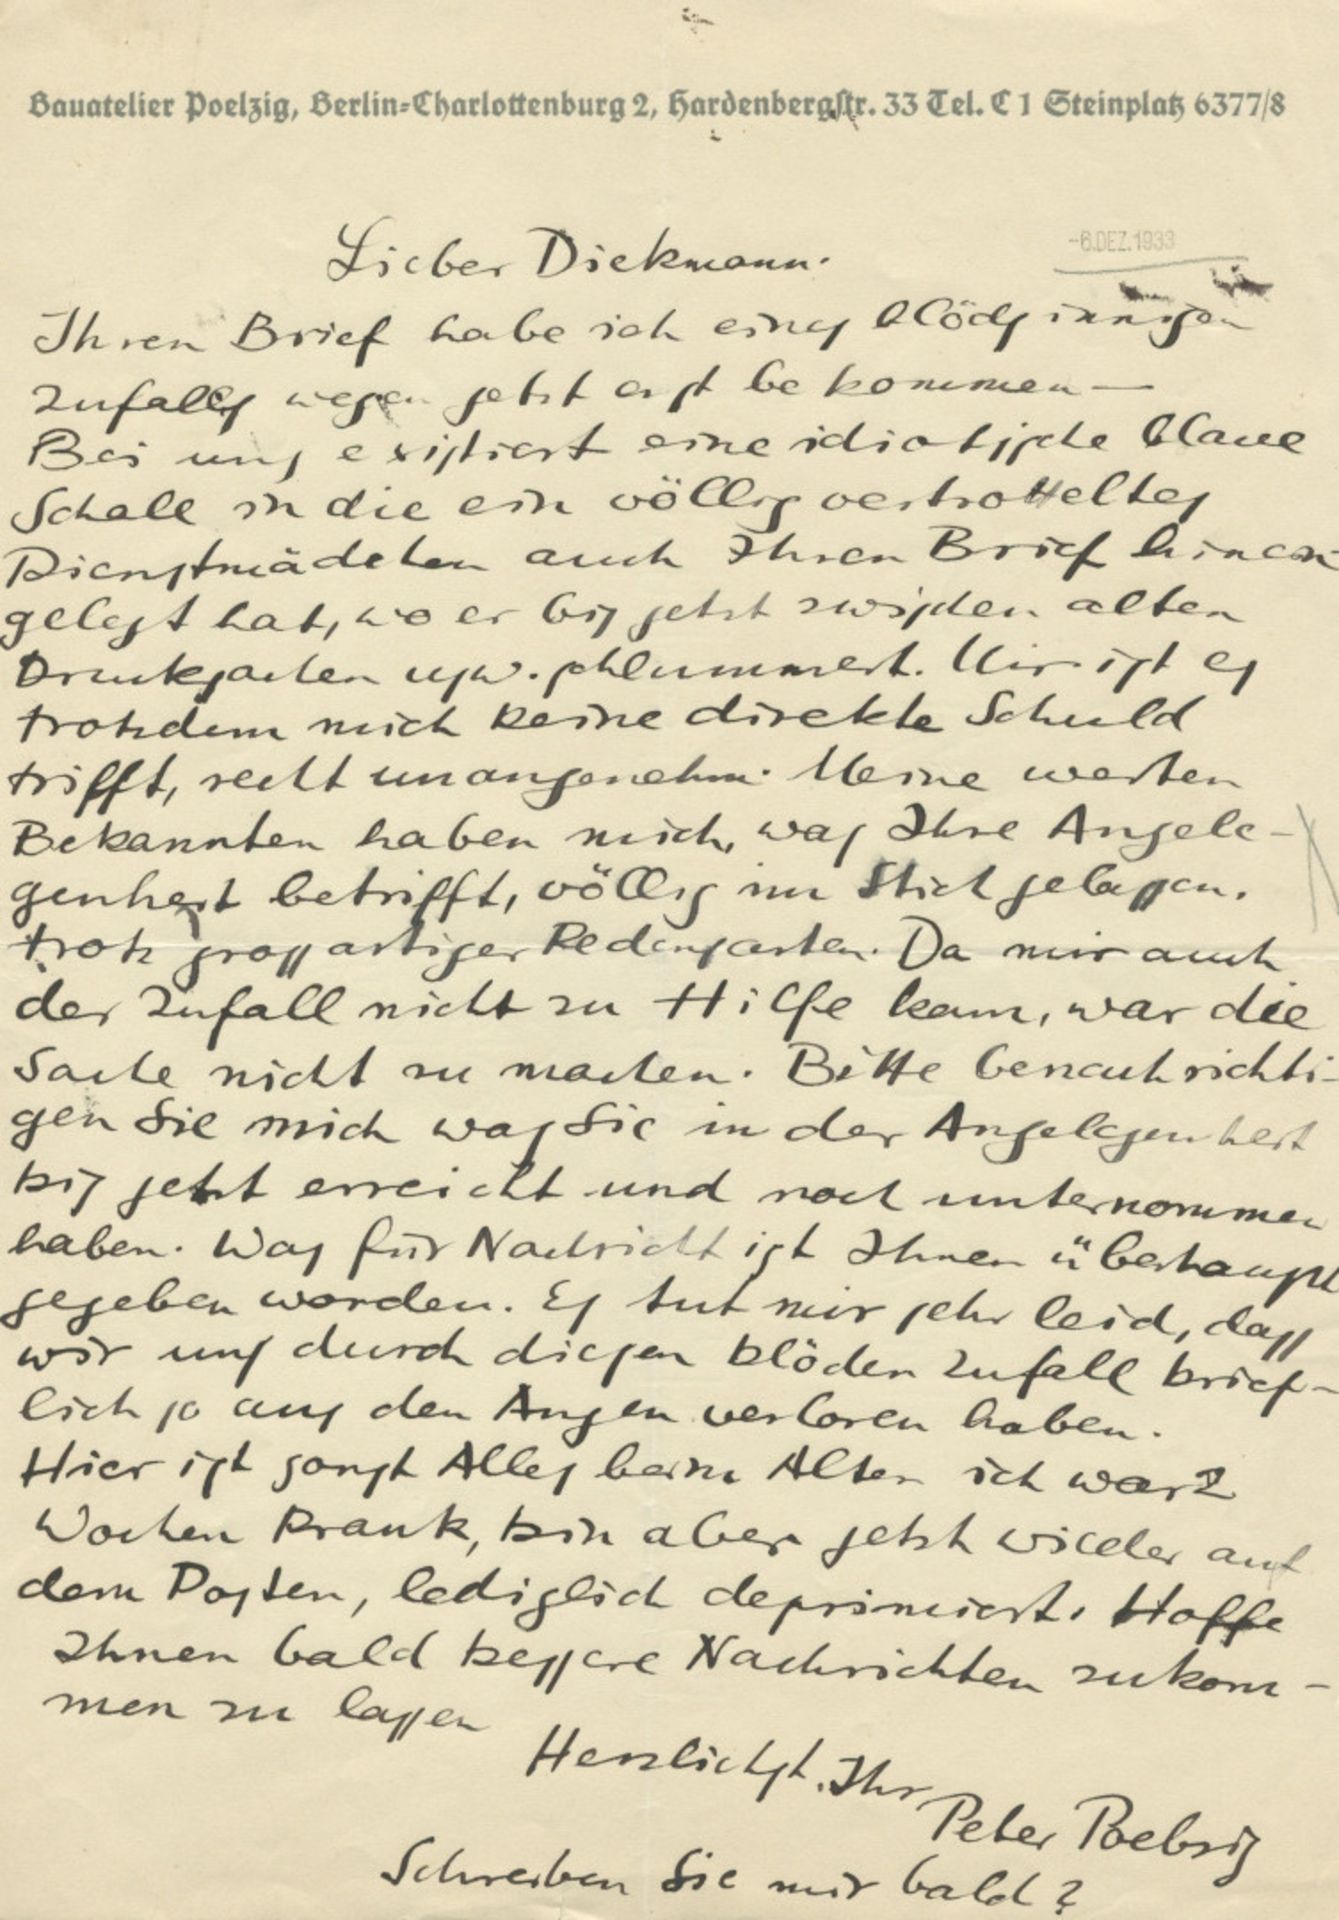 Bauatelier Poelzig, Berlin-Charlottenburg 2, Hardenbergstr. 33 Tel. C 1 Steinplatz 6377/8
-6.DEZ.1933
Lieber Diekmann.
Ihren Brief habe ich eines blödsinnigen
Zufalls wegen jetzt erst bekommen —
Bei uns existiert eine idiotische blaue
Schale in die ein völlig vertrotteltes
Dienstmädchen auch Ihren Brief hinein
gelegt hat, wo er bis jetzt zwischen alten
Drucksachen usw. schlummert. Mir ist es
trotzdem mich keine direkte Schuld
trifft, recht unangenehm. Meine werten
Bekannten haben mich, was Ihre Angele-
genheit betrifft, völlig im Stich gelassen,
trotz grossartiger Redensarten. Da mir auch
der Zufall nicht zu Hilfe kam, war die
Sache nicht zu machen. Bitte benachrichti-
gen Sie mich was Sie in der Angelegenheit
bis jetzt erreicht und noch unternommen
haben. Was für Nachricht ist Ihnen überhaupt
gegeben worden. Es tut mir sehr leid, dass
wir uns durch diesen blöden Zufall brief-
lich so aus den Augen verloren haben.
Hier ist sonst Alles beim Alten ich war 2
Wochen krank, bin aber jetzt wieder auf
dem Posten, lediglich deprimiert. Hoffe
Ihnen bald bessere Nachrichten zukom-
men zu lassen
Herzlichst. Ihr
Peter Poelzig
Schreiben Sie mir bald?